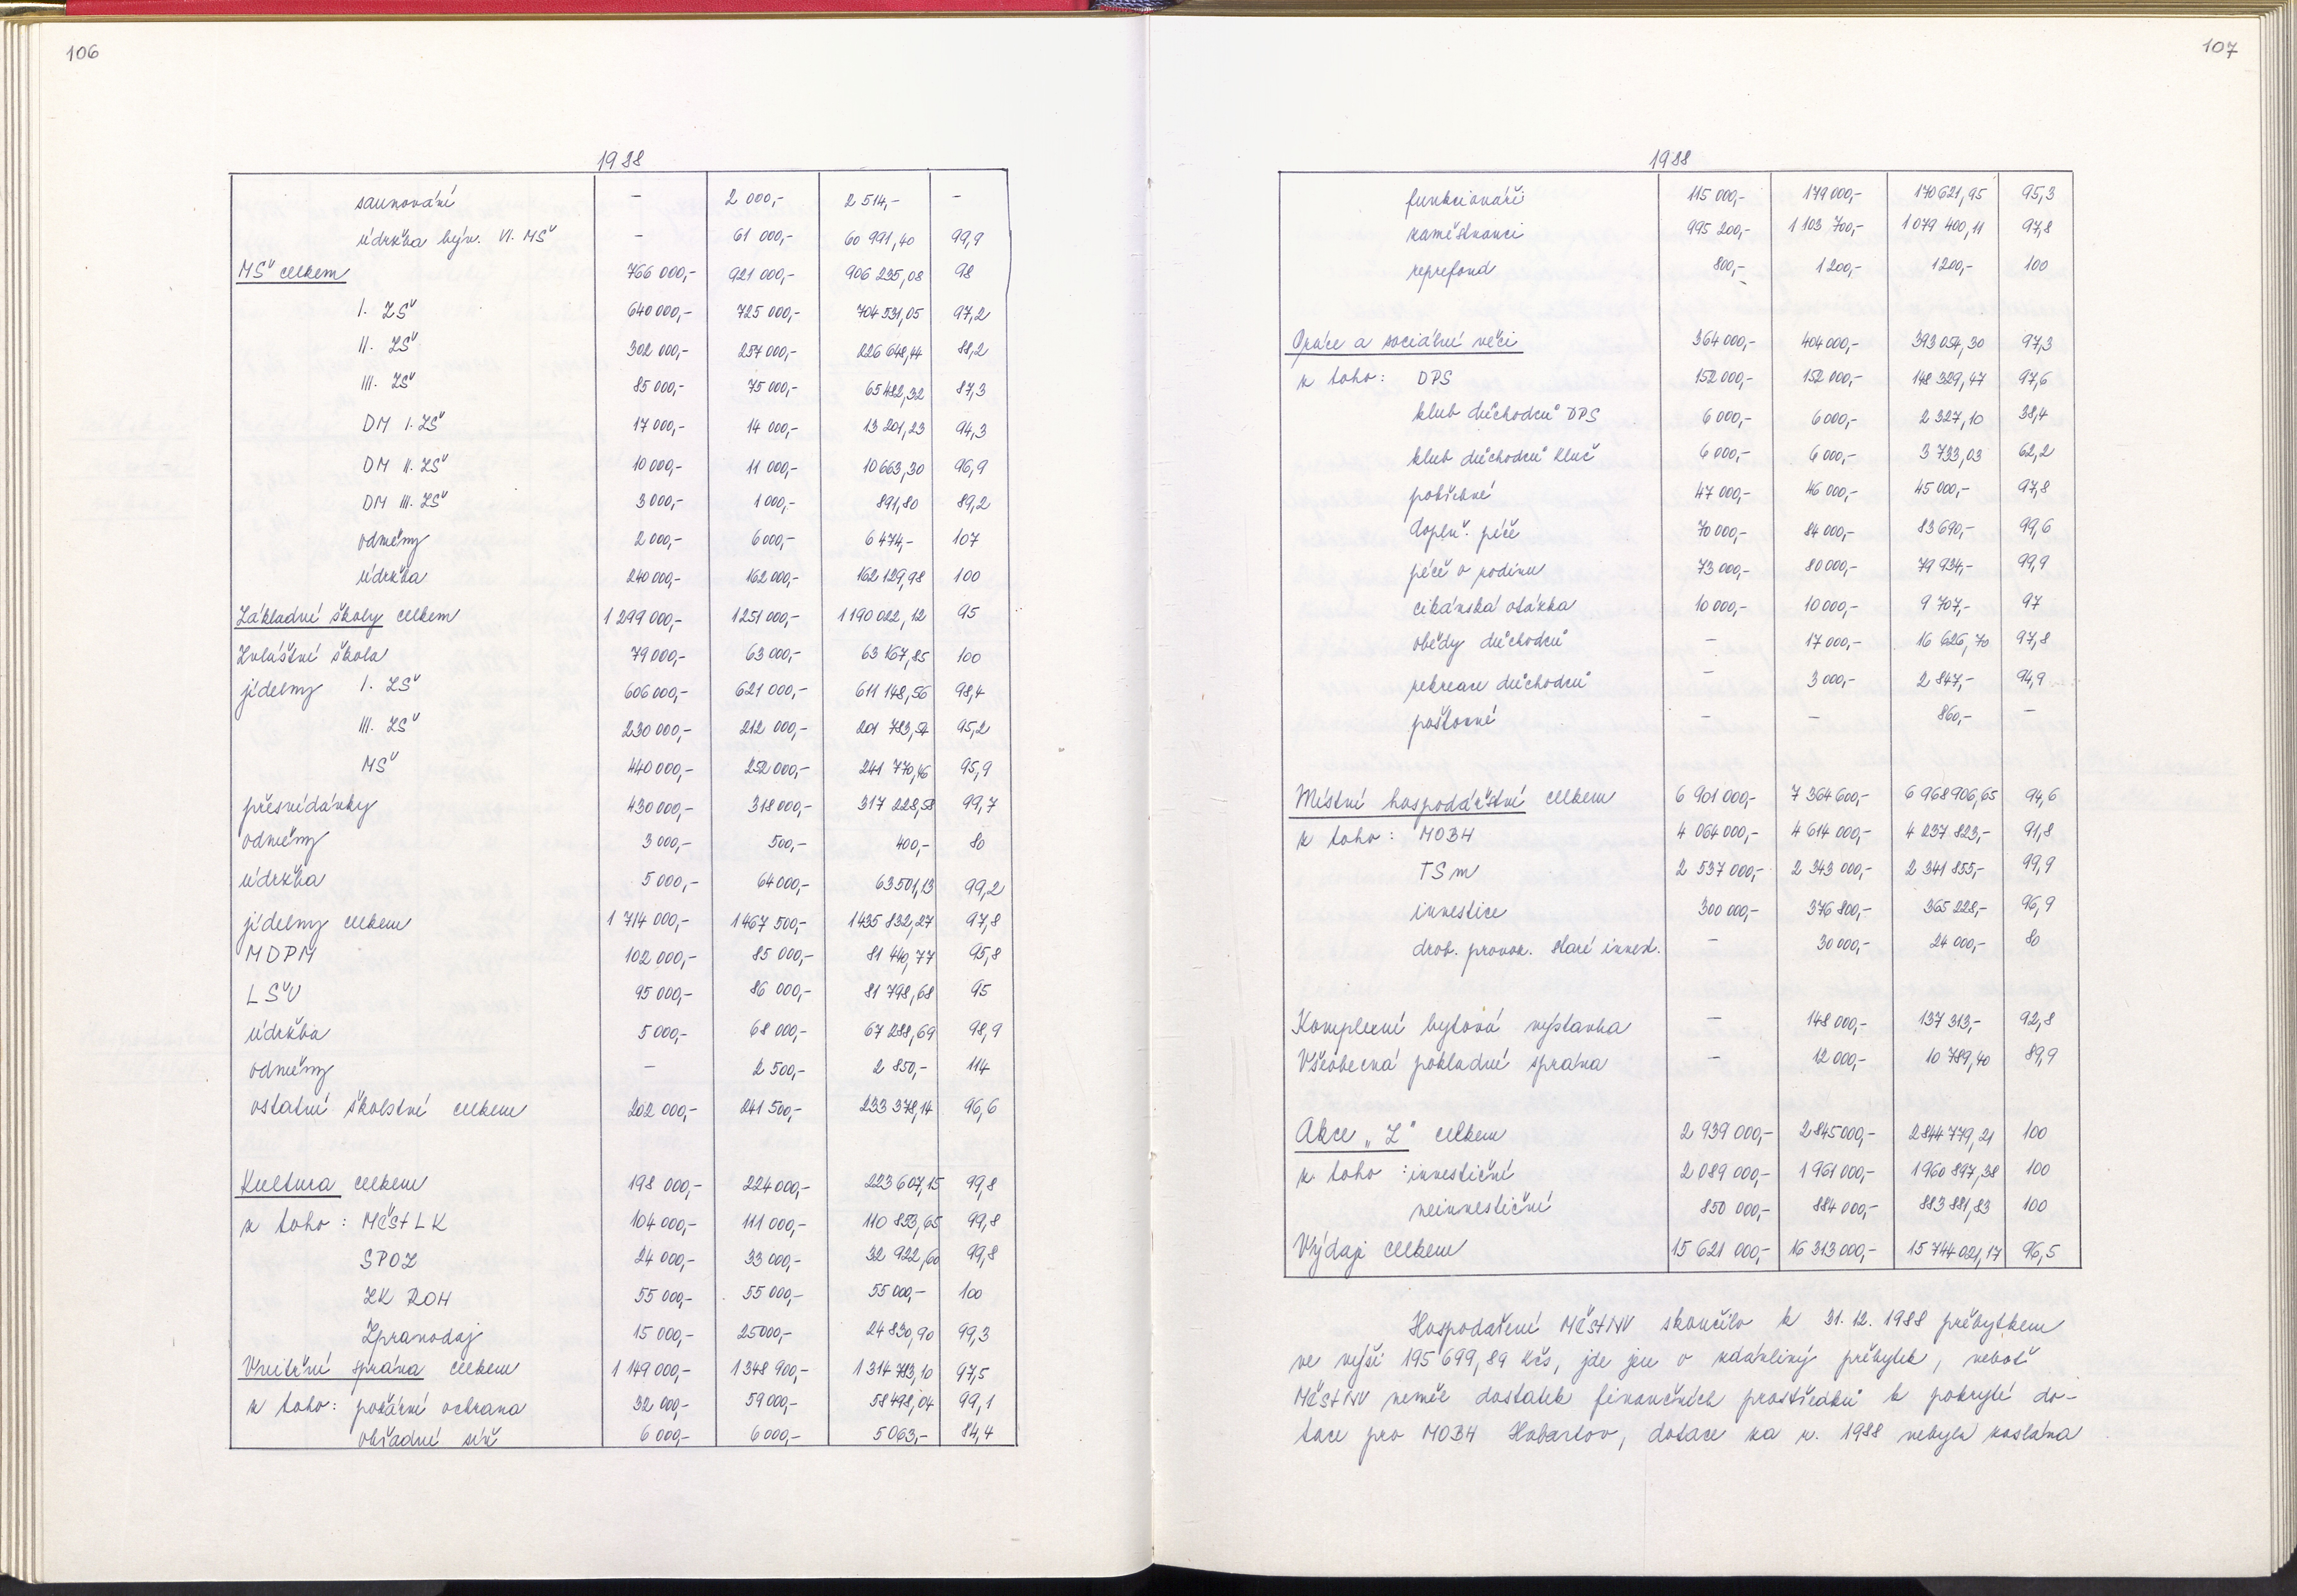 106
1988
saunování – 2 000,- 2 514,- –
údržba býv. VI. MŠ – 61 000,- 60 991,40 99,9
MŠ celkem 766 000,- 921 000,- 906 235,08 98
I. ZŠ 640 000,- 725 000,- 704 531,05 97,2
II. ZŠ 302 000,- 257 000,- 226 648,44 88,2
III. ZŠ 85 000,- 75 000,- 65 482,32 87,3
DM I. ZŠ 17 000,- 14 000,- 13 201,23 94,3
DM II. ZŠ 10 000,- 11 000,- 10 663,30 96,9
DM III. ZŠ 3 000,- 1 000,- 891,80 89,2
odměny 2 000,- 6 000,- 6 474,- 107
údržba 240 000,- 162 000,- 162 129,98 100
Základní školy celkem 1 299 000,- 1 251 000,- 1 190 022,12 95
Zvláštní škola 79 000,- 63 000,- 63 167,85 100
jídelny I. ZŠ 606 000,- 621 000,- 611 148,56 98,4
III. ZŠ 230 000,- 212 000,- 201 783,54 95,2
MŠ 440 000,- 252 000,- 241 770,46 95,9
přesnídávky 430 000,- 318 000,- 317 228,58 99,7
odměny 3 000,- 500,- 400,- 80
údržba 5 000,- 64 000,- 63 501,13 99,2
jídelny celkem 1 714 000,- 1 467 500,- 1 435 832,27 97,8
MDPM 102 000,- 85 000,- 81 440,77 95,8
LŠU 95 000,- 86 000,- 81 798,68 95
údržba 5 000,- 68 000,- 67 288,69 98,9
odměny – 2 500,- 2 850,- 114
ostatní školství celkem 202 000,- 241 500,- 233 378,14 96,6
Kultura celkem 198 000,- 224 000,- 223 607,15 99,8
z toho: MěstLK 104 000,- 111 000,- 110 853,65 99,8
SPOZ 24 000,- 33 000,- 32 922,60 99,8
ZK ROH 55 000,- 55 000,- 55 000,- 100
Zpravodaj 15 000,- 25 000,- 24 830,90 99,3
Vnitřní správa celkem 1 149 000,- 1 348 900,- 1 314 783,10 97,5
z toho: požární ochrana 32 000,- 59 000,- 58 498,04 99,1
obřadní síň 6 000,- 6 000,- 5 063,- 84,4
107
1988
funkcionáři 115 000,- 179 000,- 170 621,95 95,3
zaměstnanci 995 200,- 1 103 700,- 1 079 400,11 97,8
reprefond 800,- 1 200,- 1 200,- 100
Práce a sociální věci 364 000,- 404 000,- 393 054,30 97,3
z toho: DPS 152 000,- 152 000,- 148 329,47 97,6
klub důchodců DPS 6 000,- 6 000,- 2 327,10 38,4
klub důchodců Kluč 6 000,- 6 000,- 3 733,03 62,2
pohřebné 47 000,- 46 000,- 45 000,- 97,8
doplň. péče 70 000,- 84 000,- 83 690,- 99,6
péče o rodinu 73 000,- 80 000,- 79 934,- 99,9
cikánská otázka 10 000,- 10 000,- 9 707,- 97
obědy důchodců – 17 000,- 16 626,70 97,8
rekreace důchodců – 3 000,- 2 847,- 94,9
poštovné – – 860,- –
Místní hospodářství celkem 6 901 000,- 7 364 600,- 6 968 906,65 94,6
z toho: MOBH 4 064 000,- 4 614 000,- 4 237 823,- 91,8
TSm 2 537 000,- 2 343 000,- 2 341 855,- 99,9
investice 300 000,- 376 800,- 365 228,- 96,9
drob. provoz. staré invest. – 30 000,- 24 000,- 80
Komplexní bytová výstavba – 148 000,- 137 313,- 92,8
Všeobecná pokladní správa – 12 000,- 10 789,40 89,9
Akce „Z" celkem 2 939 000,- 2 845 000,- 2 844 779,21 100
z toho: investiční 2 089 000,- 1 961 000,- 1 960 897,38 100
neinvestiční 850 000,- 884 000,- 883 881,83 100
Výdaje celkem 15 621 000,- 16 313 000,- 15 744 021,17 96,5
Hospodaření MěstNV skončilo k 31. 12. 1988 přebytkem
ve výši 195 699,89 Kčs, jde jen o zdánlivý přebytek, neboť
MěstNV neměl dostatek finančních prostředků k pokrytí do-
tace pro MOBH Habartov, dotace za r. 1988 nebyla zaslána